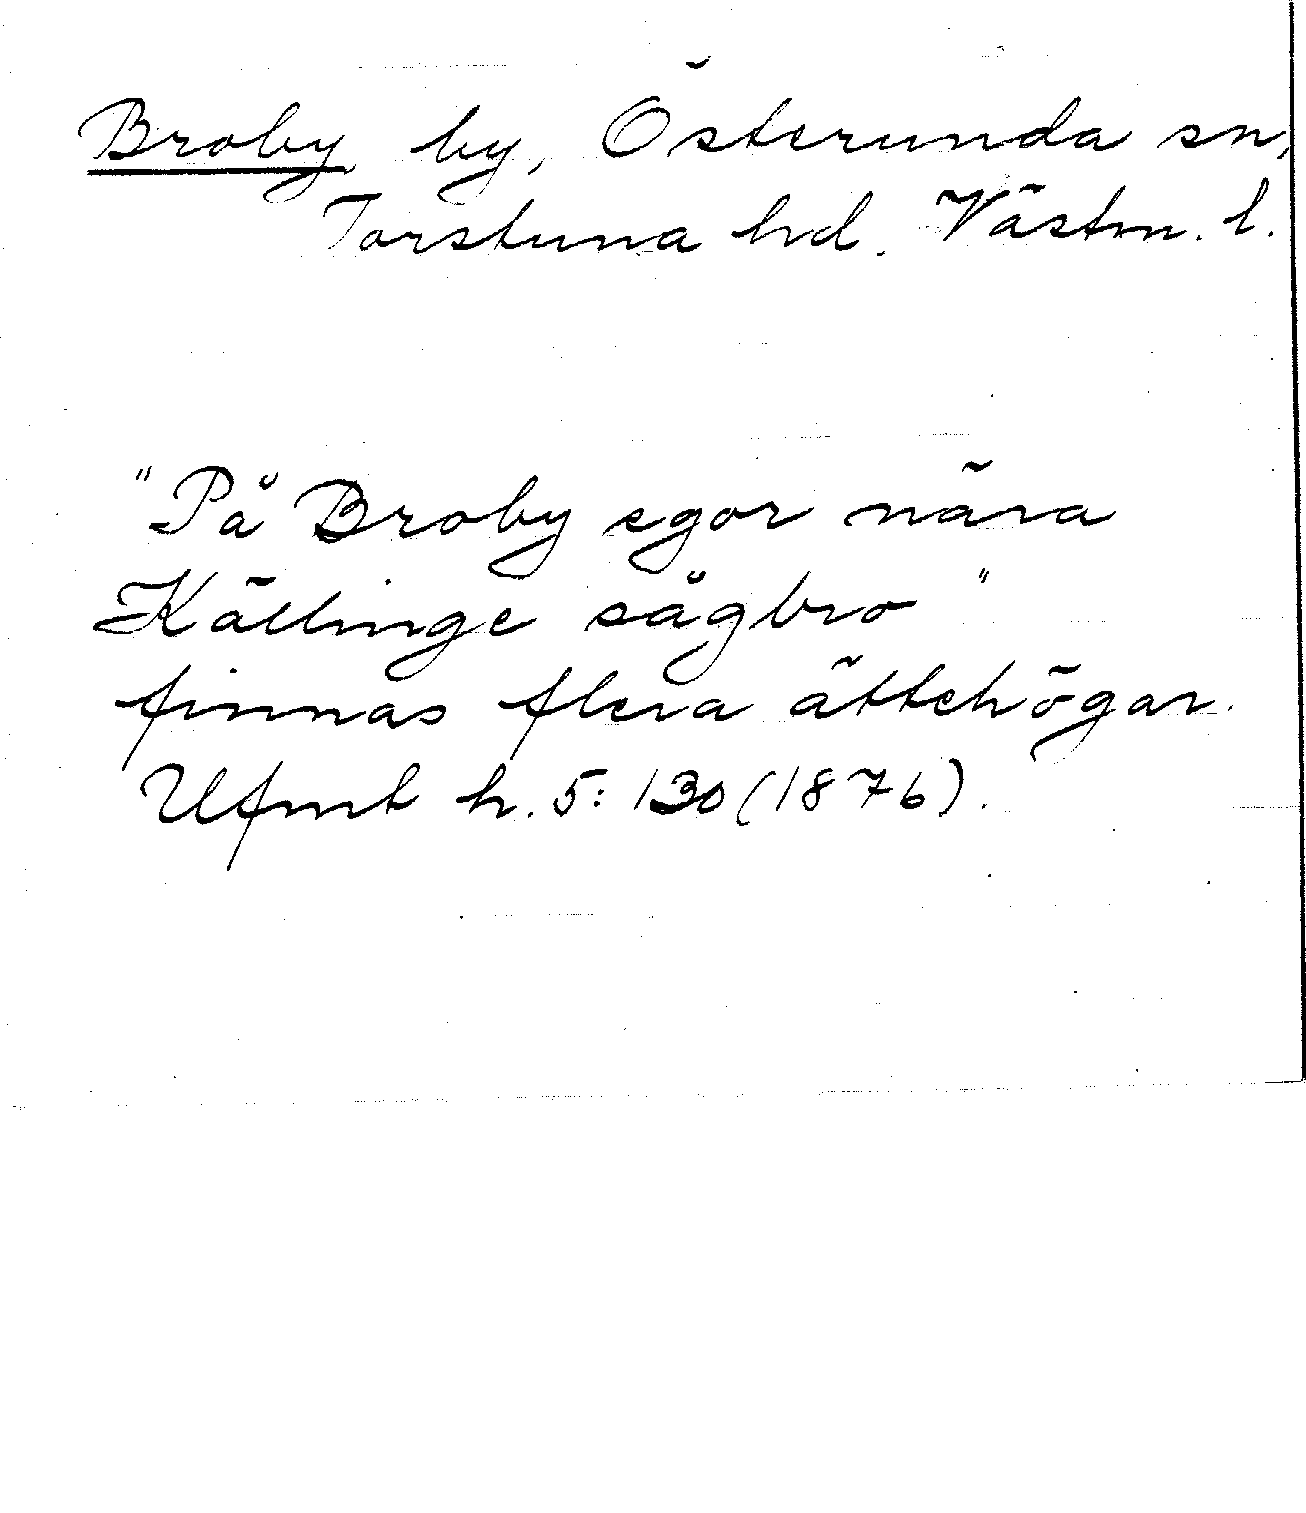 Broby by, Österunda sn,
Torstuna hd. Västm. l.
"På Broby egor nära
Källinge sågbro"
finnas flera ättehögar.
Ufmt h. 5: 130 (1876).